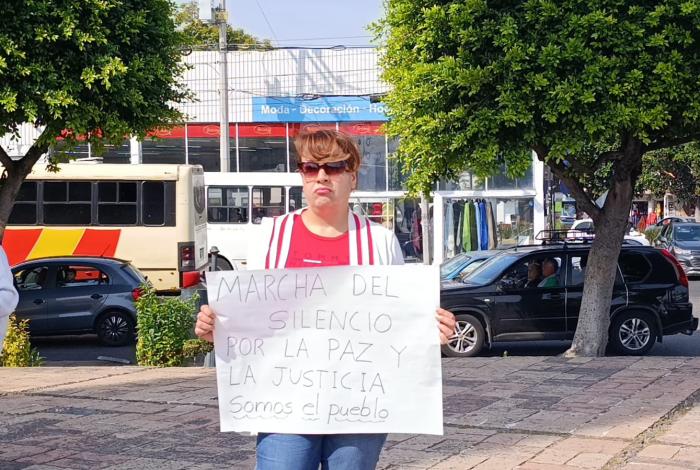 Moda - Decoración - Ho
MARCHA DEL
SILENCIO
POR LA PAZ Y
LA JUSTICIA
Somos el pueblo